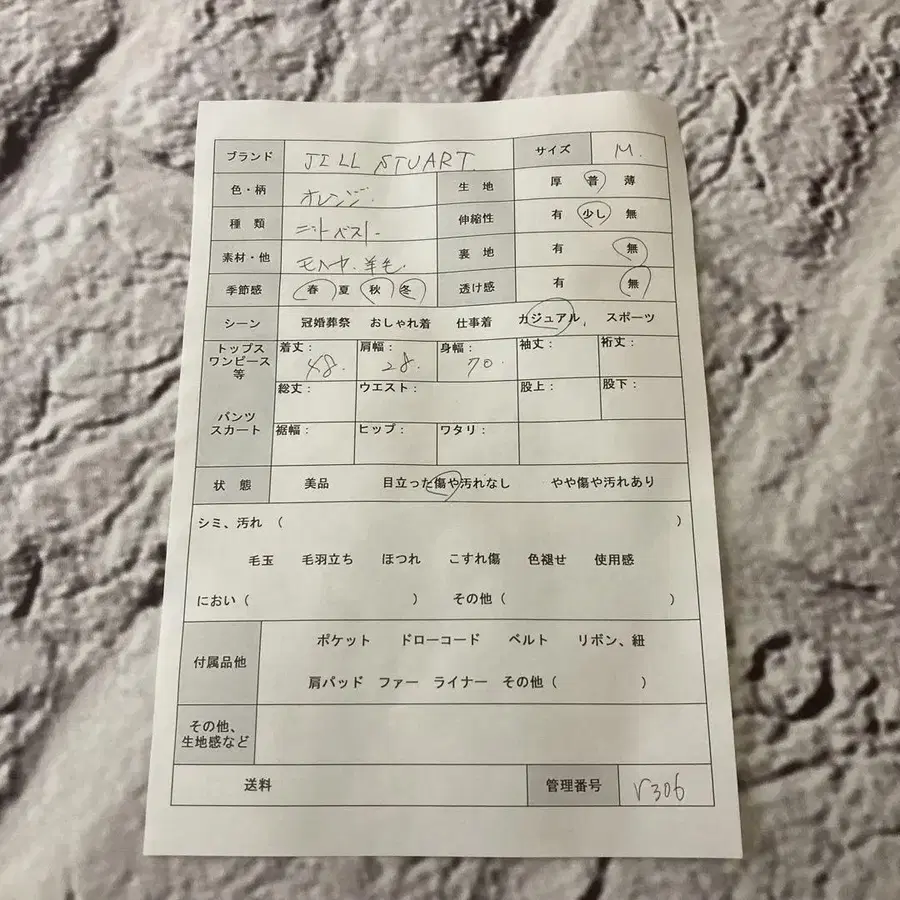 ブランド JILL STUART サイズ M.
色・柄 オレンジ 生地 厚 普 薄
種類 ニットベスト 伸縮性 有 少し 無
素材・他 モヘヤ.羊毛. 裏地 有 無
季節感 春 夏 秋 冬 透け感 有 無
シーン 冠婚葬祭 おしゃれ着 仕事着 カジュアル, スポーツ
トップス ワンピース 等 着丈: 48. 肩幅: 28. 身幅: 70. 袖丈: 裄丈:
総丈: ウエスト: 股上: 股下:
パンツ スカート 裾幅: ヒップ: ワタリ:
状態 美品 目立った傷や汚れなし やや傷や汚れあり
シミ、汚れ ( )
毛玉 毛羽立ち ほつれ こすれ傷 色褪せ 使用感
におい ( ) その他 ( )
付属品他 ポケット ドローコード ベルト リボン、紐
肩パッド ファー ライナー その他 ( )
その他、
生地感など
送料 管理番号 r306